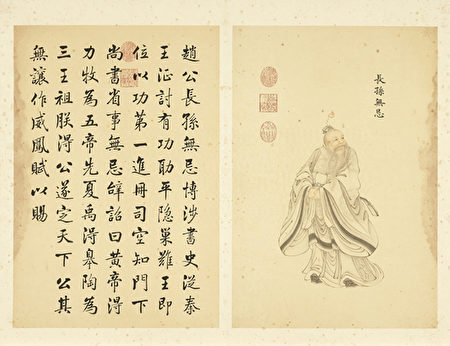 長孫無忌
趙公長孫無忌博涉書史從秦
王征討有功助平隐巢難王即
位以功第一進冊司空知門下
尚書省事無忌辝詔曰黄帝淂
力牧為五帝先夏禹淂皋陶為
三王祖朕淂公遂定天下公其
無讓作威鳳賦以賜